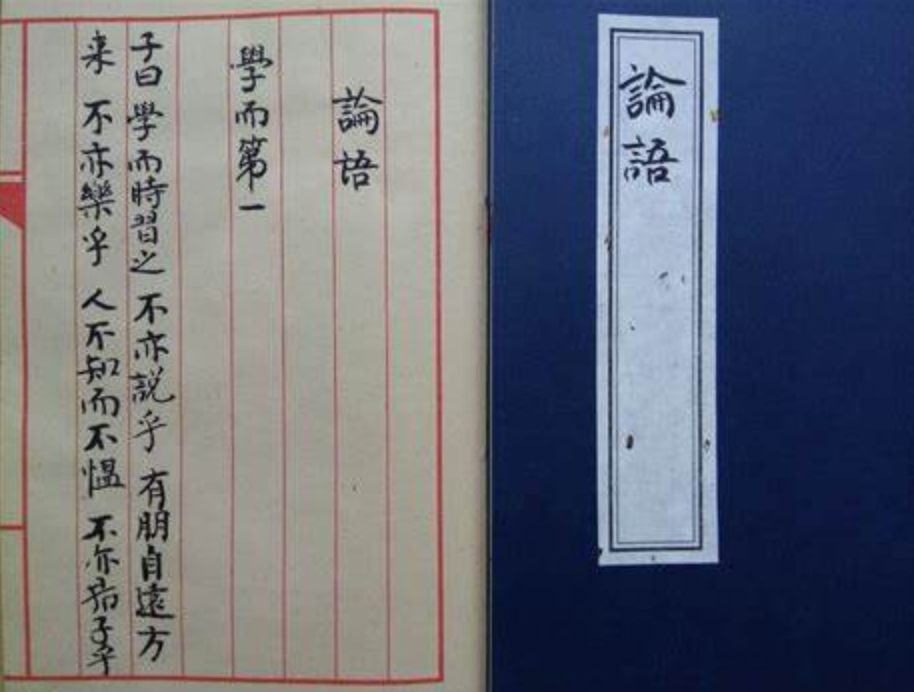 論語
學而第一
子曰 學而時習之 不亦説乎 有朋自遠方
来 不亦樂乎 人不知而不愠 不亦君子乎
論語